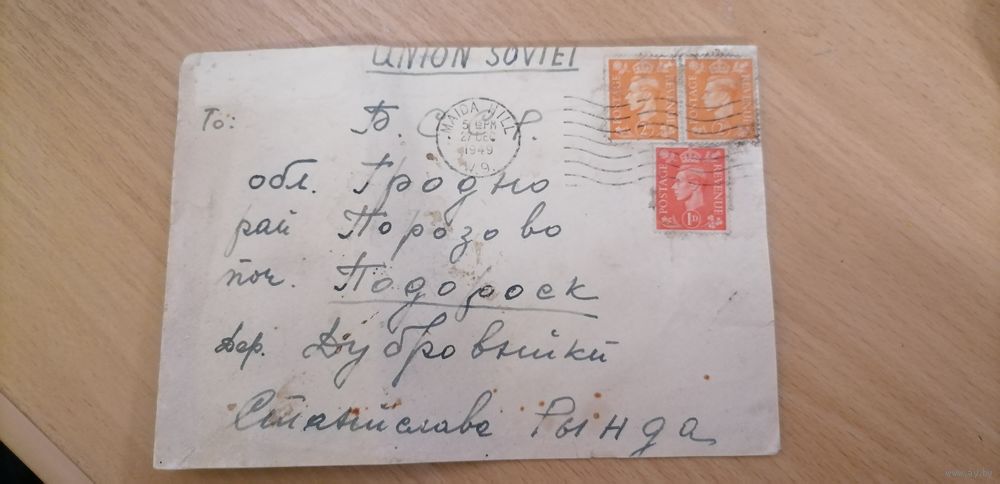 UNION SOVIET
To: Б. С. С. Р.
MAIDA HILL
5 15 PM
27 DEC
1949
W.9
POSTAGE REVENUE
POSTAGE REVENUE
POSTAGE REVENUE
1D
обл. Гродно
рай Порозово
поч. Подороск
Дер. Дубровники
Станислава Рында
www.ay.by